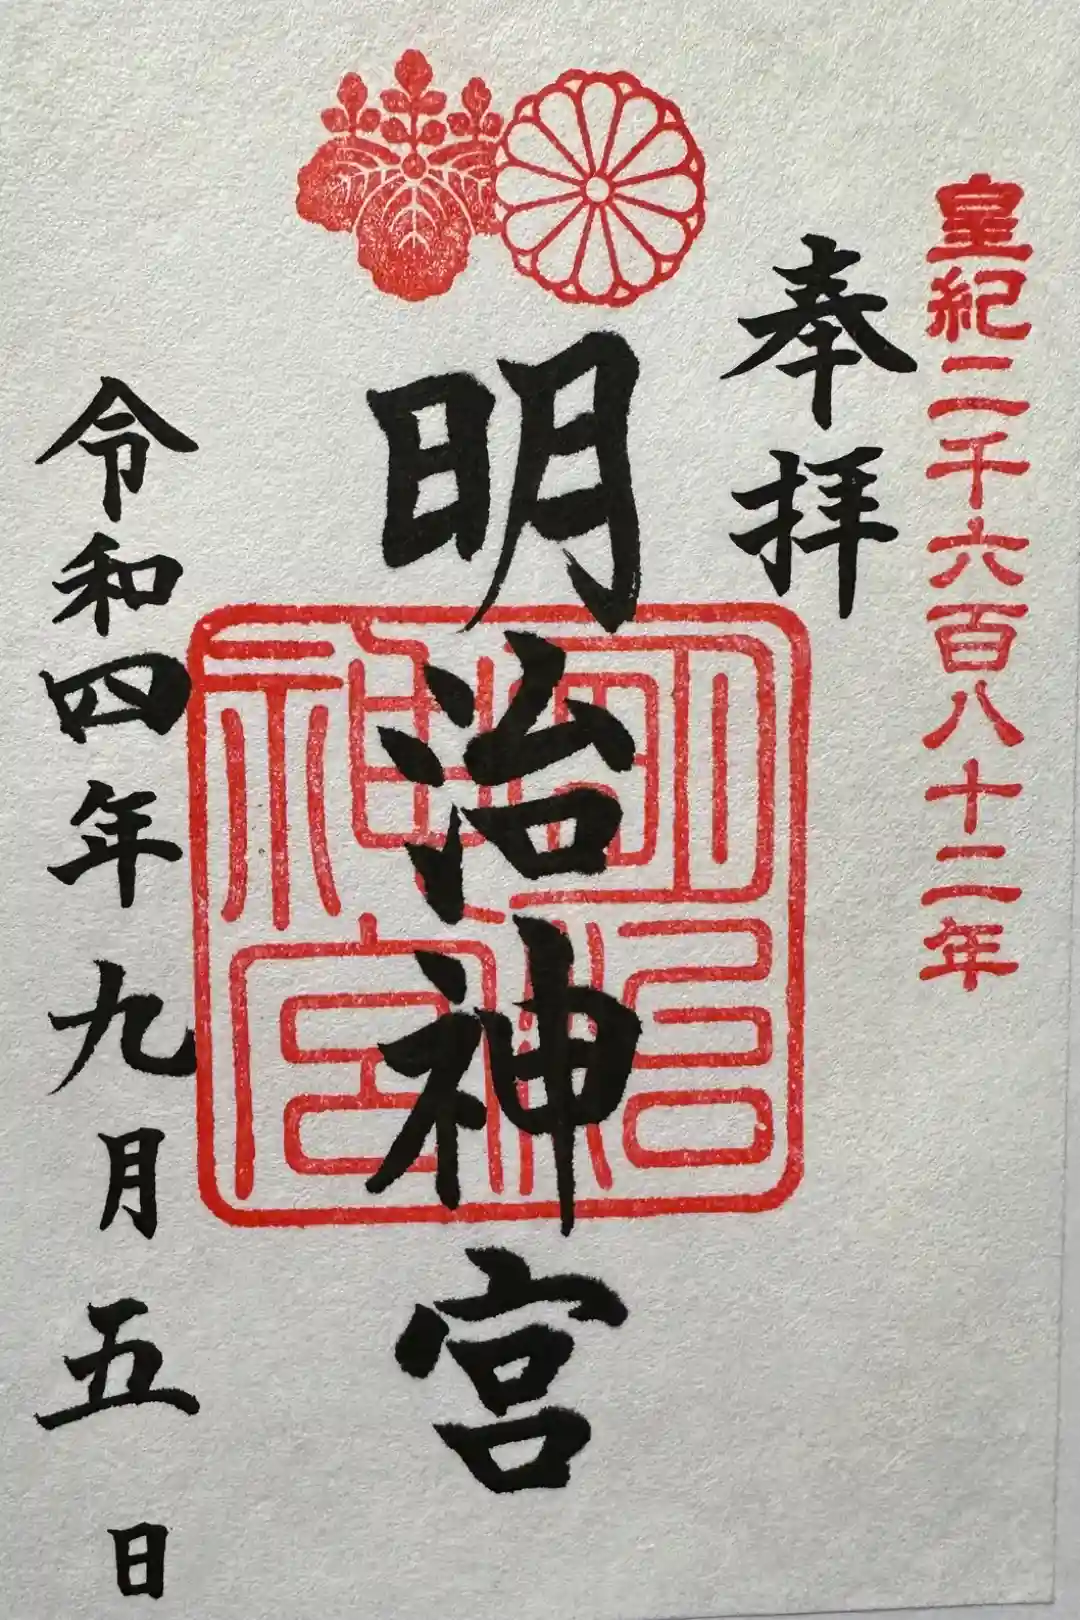 皇紀二千六百八十二年
奉拝
明治神宮
明治神宮
令和四年九月五日